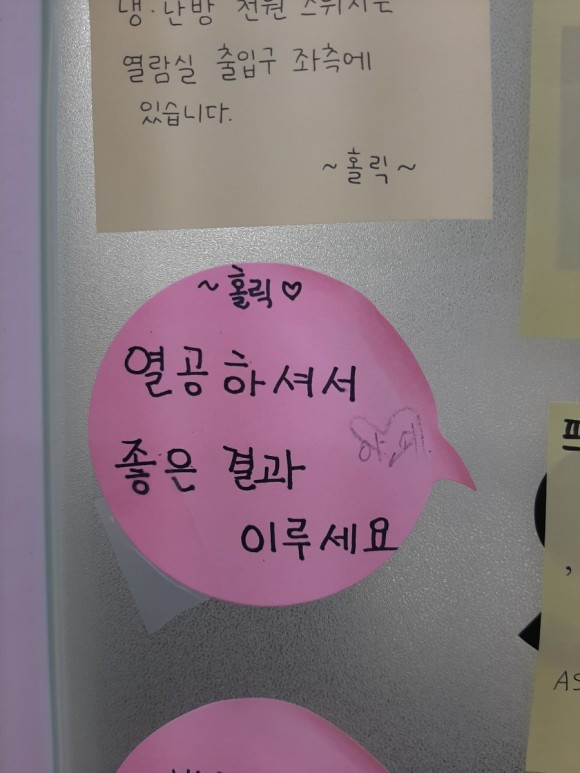 냉·난방 전원 스위치는
열람실 출입구 좌측에
있습니다.
~홀릭~
~홀릭♡
열공하셔서
좋은 결과
이루세요
AS